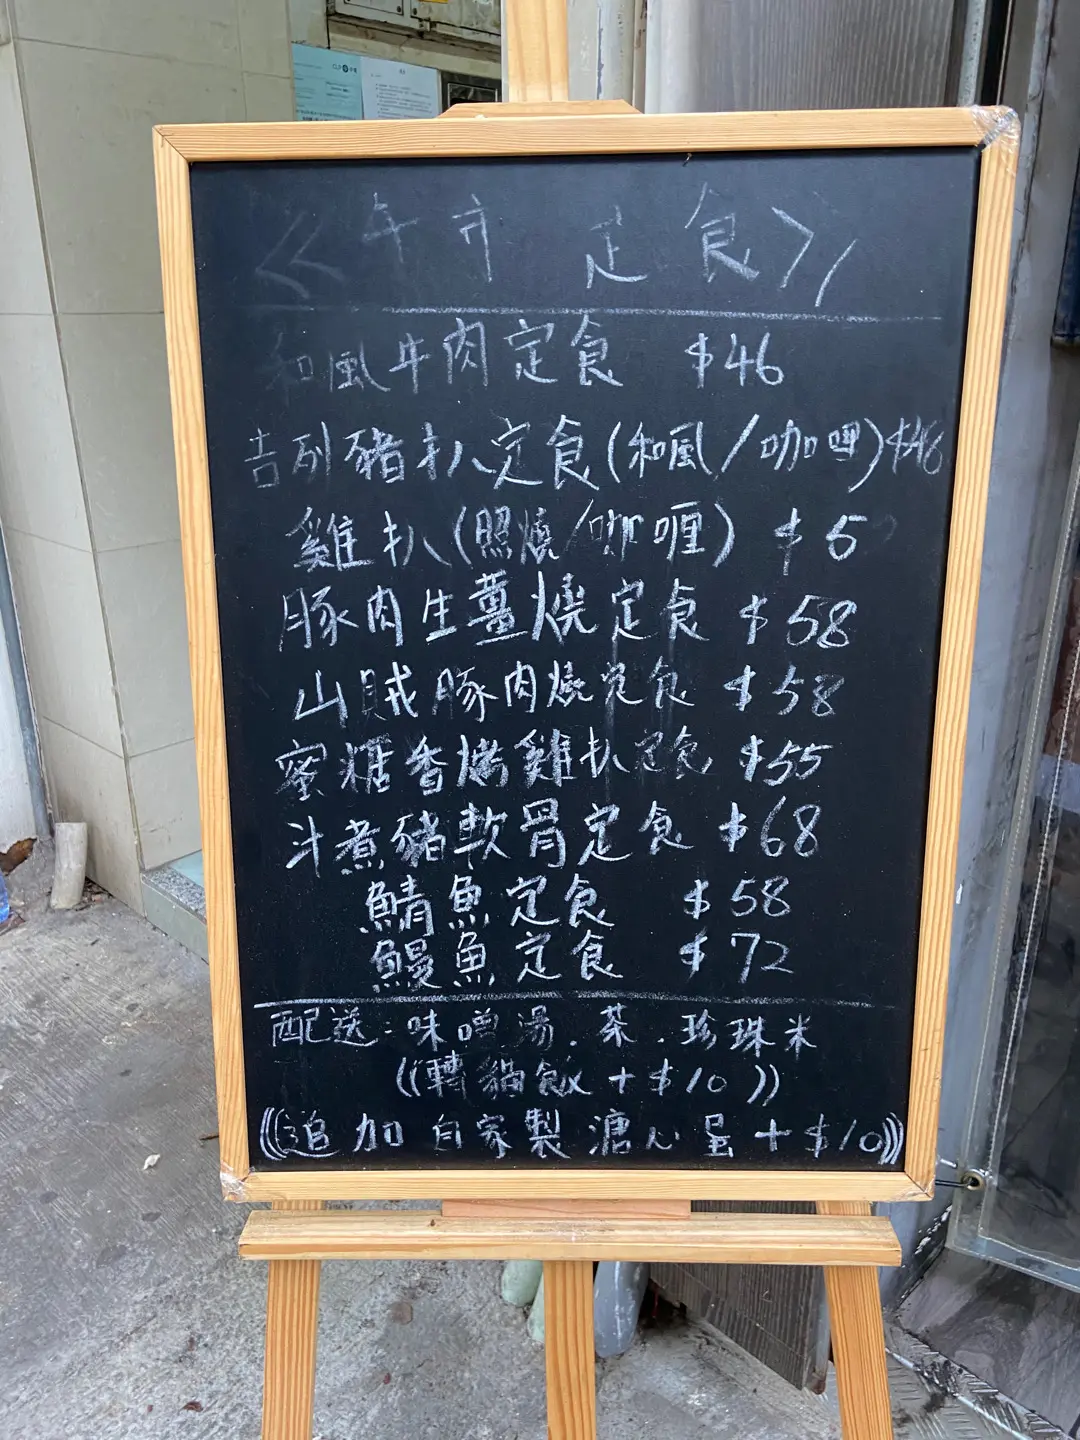 CLP 中電
《午市定食》
和風牛肉定食 $46
吉列豬扒定食(和風/咖喱)$46
雞扒(照燒/咖喱) $5
豚肉生薑燒定食 $58
山賊豚肉燒定食 $58
蜜糖香烤雞扒定食 $55
汁煮豬軟骨定食 $68
鯖魚定食 $58
鰻魚定食 $72
配送:味噌湯.茶.珍珠米
((轉貓飯+$10))
(((追加自家製溏心蛋+$10)))